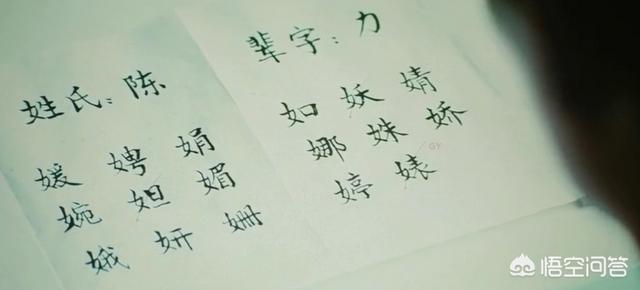 姓氏:陈
媛 娉 娟
婉 妲 媚
娥 妍 姗
辈字:力
如 妖 婧
娜 姝 娇
婷 婊
GY
悟空问答